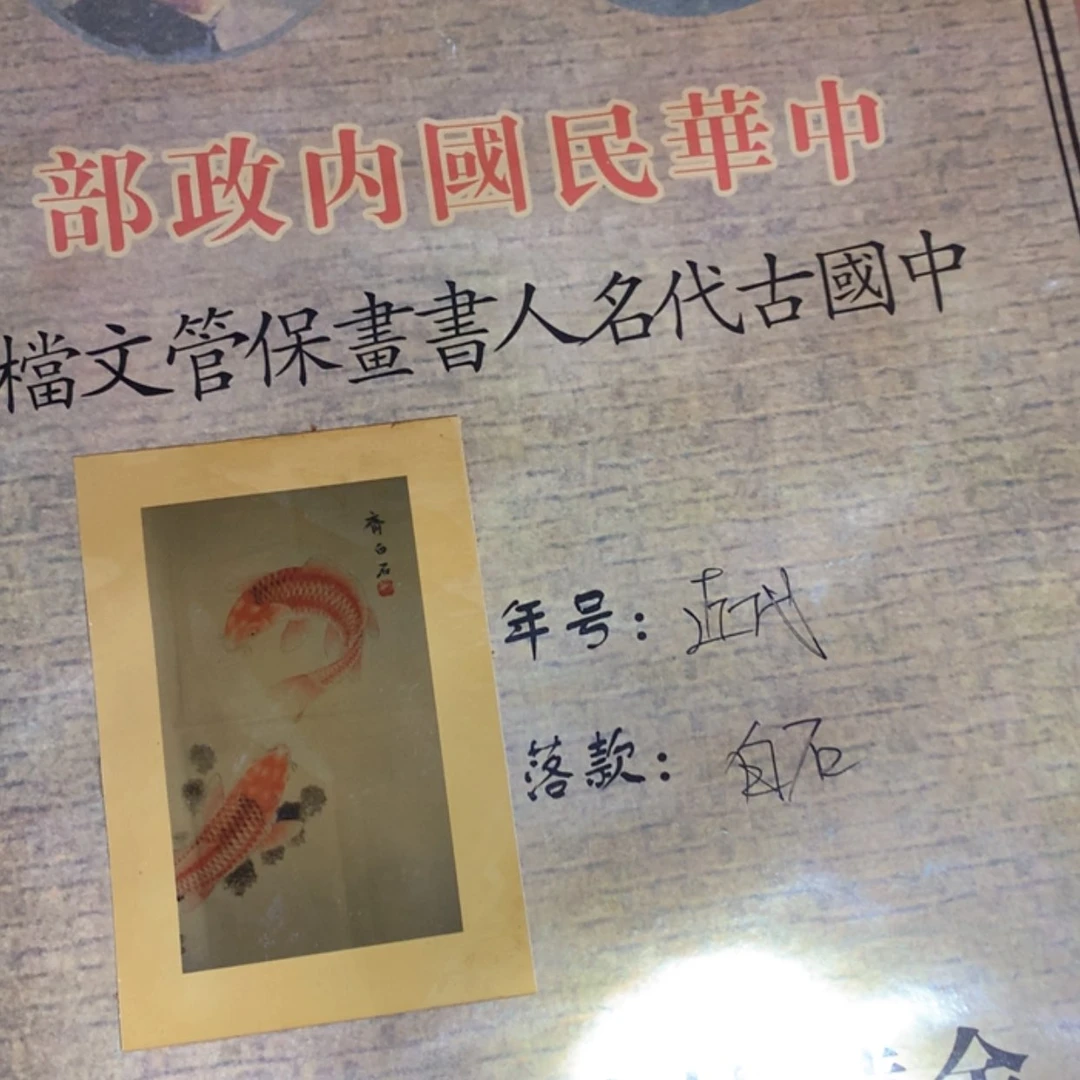 中華民國内政部
中國古代名人書畫保管文檔
齊白石
年号：近代
落款：白石